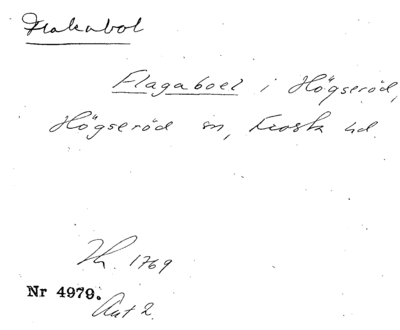 Flakabol
Flagaboel i Högseröd,
Högseröd sn, Frosta hd.
Th. 1769
Nr 4979.
Ant 2.